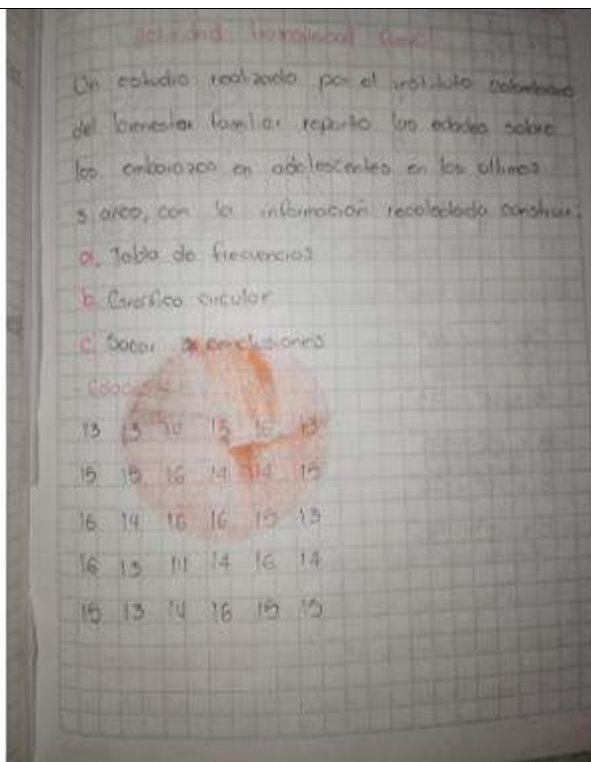 Un estudio realizado por el instituto colombiano
del bienestar familiar reporto las edades sobre
los embarazos en adolescentes en los ultimos
5 años, con la informacion recolectada construir:
a. Tabla de frecuencias
b. Grafico circular
c. Sacar conclusiones
- Edades
13 13 14 15 16 13
15 15 16 14 14 15
16 14 16 16 15 13
16 13 14 14 16 14
15 13 14 16 15 15